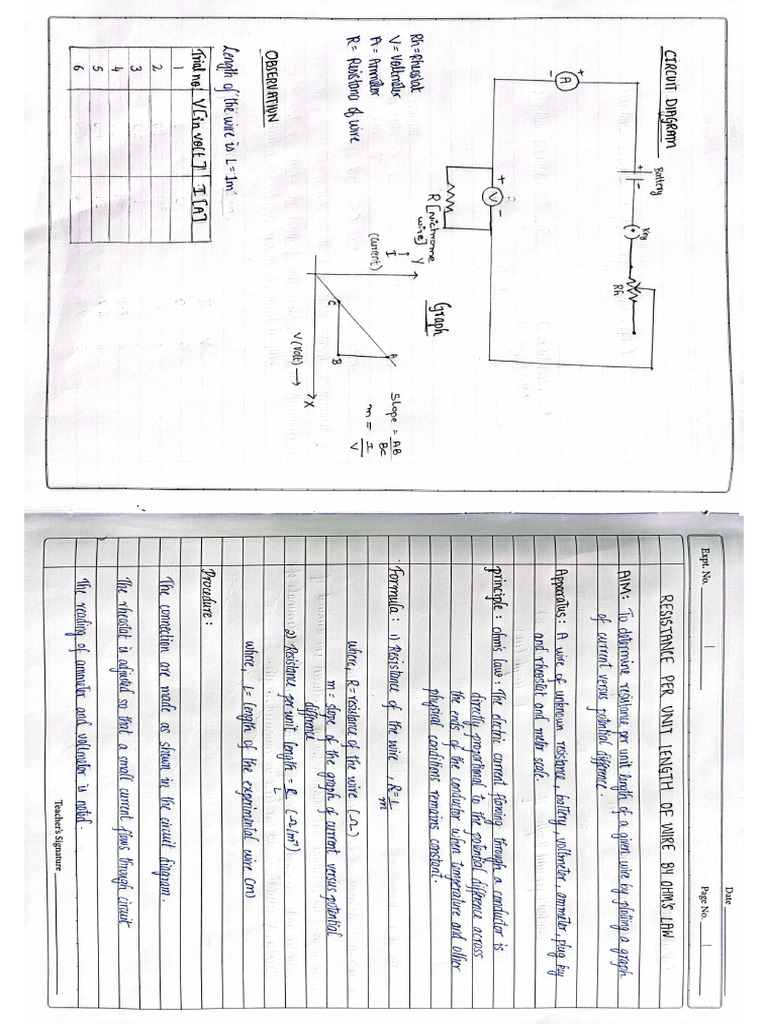 CIRCUIT DIAGRAM
Battery
+ -
Key
Rh
+
A
-
+ V -
R [Nichrome
wire]
Rh = Rheostat
V = Voltmeter
A = Ammeter
R = Resistance of wire
Graph
Y
I
(current)
A
B
C
V (Volt) →
X
Slope = AB/BC
m = I/V
OBSERVATION
Length of the wire is L = 1m
Trial no V [in volt] I [A]
1
2
3
4
5
6
Date
Expt. No. 1
Page No. 1
RESISTANCE PER UNIT LENGTH OF WIRE BY OHM'S LAW
AIM: To determine resistance per unit length of a given wire by ploting a graph
of current versus potential difference.
Apparatus: A wire of unknown resistance, battery, voltmeter, ammeter, plug key
and rheostat and meter scale.
principle: ohm's law: The electric current flowing through a conductor is
directly proportional to the potential difference across
the ends of the conductor when temperature and other
physical conditions remains constant.
Formula: 1) Resistance of the wire, R = 1/m
where, R = resistance of the wire (Ω)
m = slope of the graph of current versus potential
diffrence
2) Resistance per unit length = R/L (Ωm⁻¹)
where, L = length of the experimental wire (m)
Procedure:
The connection are made as shown in the circuit diagram.
The rheostat is adjusted so that a small current flows through circuit
The reading of ammeter and voltmeter is noted.
Teacher's Signature